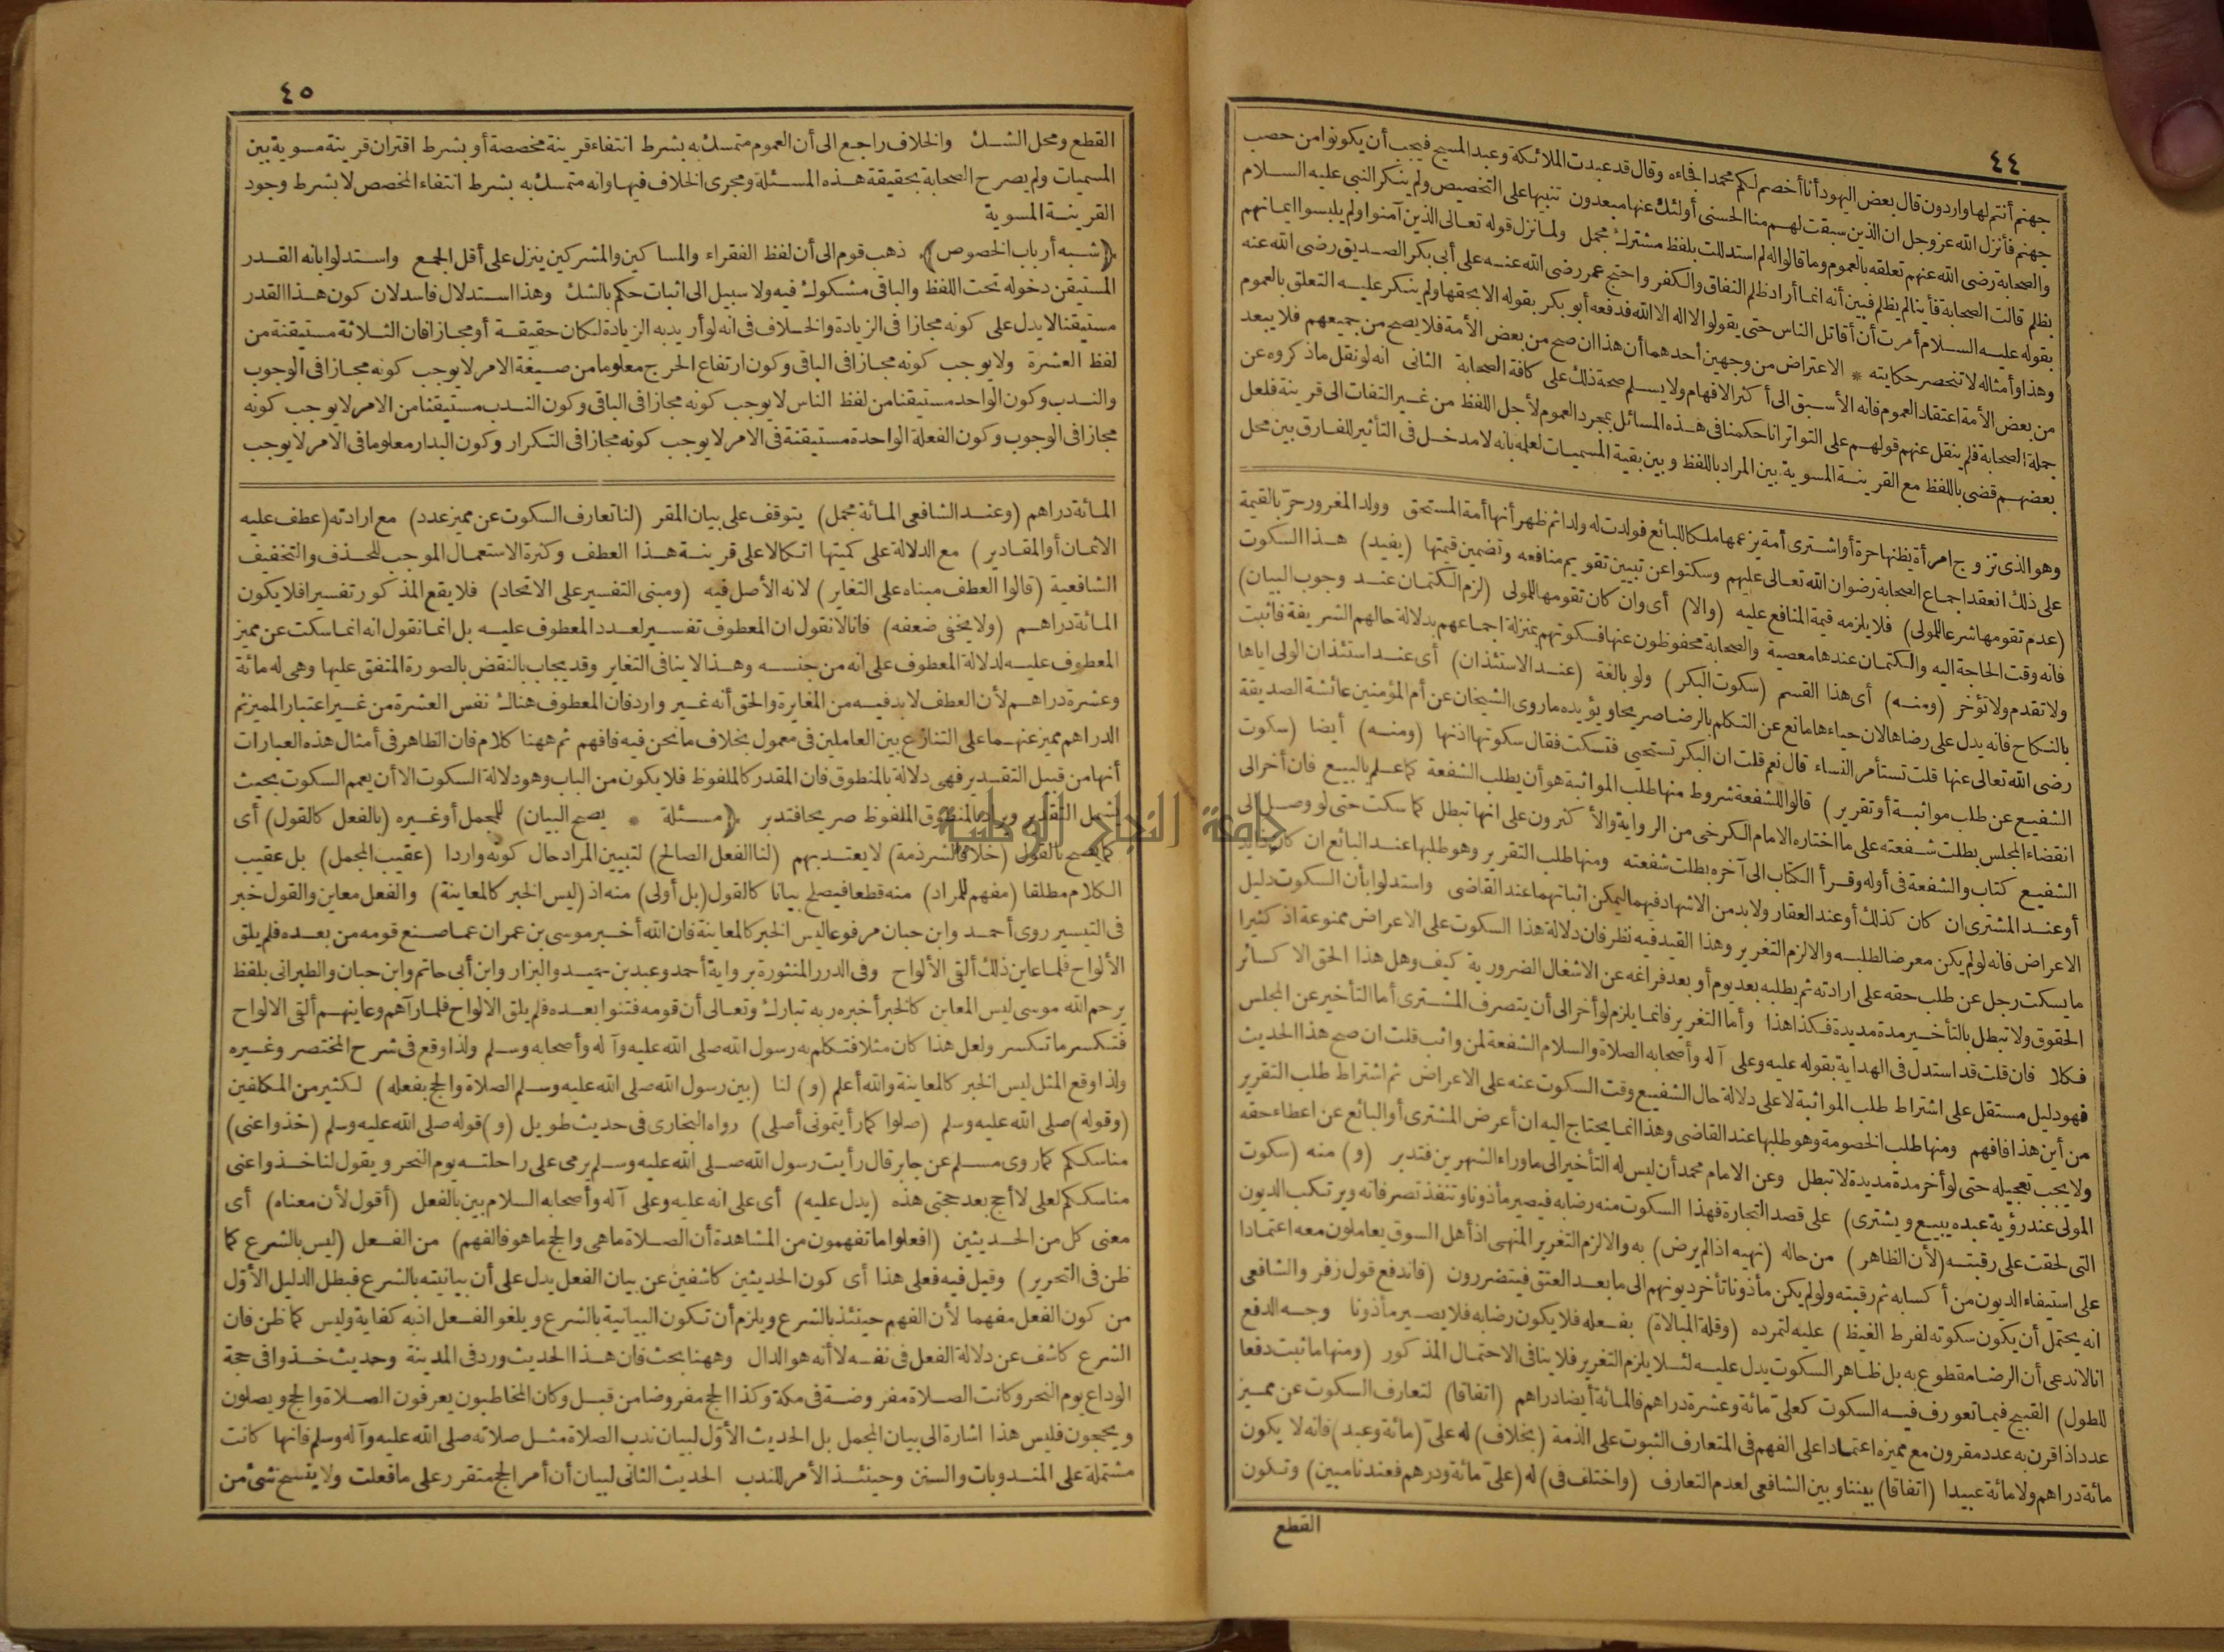 ٤٤
جهنم أنتم لها واردون قال بعض اليهود أنا أخصم لكم محمدا فجاءه وقال قد عبدت الملائكة وعبد المسيح فيجب أن يكونوا من حصب
جهنم فأنزل الله عز وجل ان الذين سبقت لهم منا الحسنى أولئك عنها مبعدون تنبيها على التخصيص ولم ينكر النبي عليه السلام
والصحابة رضى الله عنهم تعلقه بالعموم وما قالوا له لم استدللت بلفظ مشترك مجمل ولما نزل قوله تعالى الذين آمنوا ولم يلبسوا ايمانهم
بظلم قالت الصحابة فأينا لم يظلم فبين أنه انما أراد ظلم النفاق والكفر واحتج عمر رضى الله عنه على أبى بكر الصديق رضى الله عنه
بقوله عليه السلام أمرت أن أقاتل الناس حتى يقولوا لا اله الا الله فدفعه أبو بكر بقوله الا بحقها ولم ينكر عليه التعلق بالعموم
وهذا وأمثاله لا تنحصر حكايته * الاعتراض من وجهين أحدهما أن هذا ان صح من بعض الأمة فلا يصح من جميعهم فلا يبعد
من بعض الأمة اعتقاد العموم فانه الأسبق الى أكثر الافهام ولا يسلم صحة ذلك على كافة الصحابة الثانى انه لو نقل ما ذكروه عن
جملة الصحابة فلم ينقل عنهم قولهم على التواتر انا حكمنا فى هذه المسائل بمجرد العموم لأجل اللفظ من غير التفات الى قرينة فلعل
بعضهم قضى باللفظ مع القرينة المسوية بين المراد باللفظ وبين بقية المسميات لعلمه بأنه لا مدخل فى التأثير للفارق بين محل
وهو الذى تزوج امرأة يظنها حرة أو اشترى أمة يزعمها ملكا للبائع فولدت له ولدا ثم ظهر أنها أمة المستحق وولد المغرور حر بالقيمة
على ذلك انعقد اجماع الصحابة رضوان الله تعالى عليهم وسكتوا عن تبيين تقويم منافعه وتضمين قيمتها (يفيد) هذا السكوت
(عدم تقومها شرعا للمولى) فلا يلزمه قيمة المنافع عليه (والا) أى وان كان تقومها للمولى (لزم الكتمان عند وجوب البيان)
فانه وقت الحاجة اليه والكتمان عندها معصية والصحابة محفوظون عنها فسكوتهم بمنزلة اجماعهم بدلالة حالهم الشريفة فاثبت
ولا تقدم ولا تؤخر (ومنه) أى هذا القسم (سكوت البكر) ولو بالغة (عند الاستئذان) أى عند استئذان الولى اياها
بالنكاح فانه يدل على رضاها لان حياءها مانع عن التكلم بالرضا صريحا ويؤيده ما روى الشيخان عن أم المؤمنين عائشة الصديقة
رضى الله تعالى عنها قلت تستأمر النساء قال نعم قلت ان البكر تستحيى فتسكت فقال سكوتها اذنها (ومنه) أيضا (سكوت
الشفيع عن طلب مواثبة أو تقرير) قالوا للشفعة شروط منها طلب المواثبة هو أن يطلب الشفعة كما علم بالبيع فان أخر الى
انقضاء المجلس بطلت شفعته على ما اختاره الامام الكرخى من الرواية والأكثرون على انها تبطل كما سكت حتى لو وصل الى
الشفيع كتاب والشفعة فى أوله وقرأ الكتاب الى آخره بطلت شفعته ومنها طلب التقرير وهو طلبها عند البائع ان كان
أو عند المشترى ان كان كذلك أو عند العقار ولا بد من الاشهاد فيهما ليمكن اثباتهما عند القاضى واستدلوا بأن السكوت دليل
الاعراض فانه لو لم يكن معرضا لطلبه والا لزم التغرير وهذا القيد فيه نظر فان دلالة هذا السكوت على الاعراض ممنوعة اذ كثيرا
ما يسكت رجل عن طلب حقه على ارادته ثم يطلبه بعد يوم أو بعد فراغه عن الاشغال الضرورية كيف وهل هذا الحق الا كسائر
الحقوق ولا تبطل بالتأخير مدة مديدة فكذا هذا وأما التغرير فانما يلزم لو أخر الى أن يتصرف المشترى أما التأخير عن المجلس
فكلا فان قلت قد استدل فى الهداية بقوله عليه وعلى آله وأصحابه الصلاة والسلام الشفعة لمن واثب قلت ان صح هذا الحديث
فهو دليل مستقل على اشتراط طلب المواثبة لا على دلالة حال الشفيع وقت السكوت عنه على الاعراض ثم اشتراط طلب التقرير
من أين هذا فافهم ومنها طلب الخصومة وهو طلبها عند القاضى وهذا انما يحتاج اليه ان أعرض المشترى أو البائع عن اعطاء حقه
ولا يجب تعجيله حتى لو أخر مدة مديدة لا تبطل وعن الامام محمد أن ليس له التأخير الى ما وراء الشهرين فتدبر (و) منه (سكوت
المولى عند رؤية عبده يبيع ويشترى) على قصد التجارة فهذا السكوت منه رضا به فيصير مأذونا وتنفذ تصرفاته ويرتكب الديون
التى لحقت على رقبته (لأن الظاهر) من حاله (نهيه اذا لم يرض) به والا لزم التغرير المنهى اذ أهل السوق يعاملون معه اعتمادا
على استيفاء الديون من أكسابه ثم رقبته ولو لم يكن مأذونا تأخر ديونهم الى ما بعد العتق فيتضررون (فاندفع قول زفر والشافعى
انه يحتمل أن يكون سكوته لفرط الغيظ) عليه لتمرده (وقلة المبالاة) بفعله فلا يكون رضا به فلا يصير مأذونا وجه الدفع
انا لا ندعى أن الرضا مقطوع به بل ظاهر السكوت يدل عليه لئلا يلزم التغرير فلا ينافى الاحتمال المذكور (ومنها ما ثبت دفعا
للطول) القبيح فيما تعورف فيه السكوت كعلى مائة وعشرة دراهم فالمائة أيضا دراهم (اتفاقا) لتعارف السكوت عن مميز
عدد اذا قرن به عدد مقرون مع مميزه اعتمادا على الفهم فى المتعارف الثبوت على الذمة (بخلاف) له على (مائة وعبد) فانه لا يكون
مائة دراهم ولا مائة عبيدا (اتفاقا) بيننا وبين الشافعى لعدم التعارف (واختلف فى) له (على مائة ودرهم فعندنا مبين) وتكون
القطع
٤٥
القطع ومحل الشك والخلاف راجع الى أن العموم متمسك به بشرط انتفاء قرينة مخصصة أو بشرط اقتران قرينة مسوية بين
المسميات ولم يصرح الصحابة بحقيقة هذه المسئلة ومجرى الخلاف فيها وانه متمسك به بشرط انتفاء المخصص لا بشرط وجود
القرينة المسوية
﴿شبه أرباب الخصوص﴾ ذهب قوم الى أن لفظ الفقراء والمساكين والمشركين ينزل على أقل الجمع واستدلوا بانه القدر
المستيقن دخوله تحت اللفظ والباقى مشكوك فيه ولا سبيل الى اثبات حكم بالشك وهذا استدلال فاسد لان كون هذا القدر
مستيقنا لا يدل على كونه مجازا فى الزيادة والخلاف فى انه لو أريد به الزيادة لكان حقيقة أو مجازا فان الثلاثة مستيقنة من
لفظ العشرة ولا يوجب كونه مجازا فى الباقى وكون ارتفاع الحرج معلوما من صيغة الامر لا يوجب كونه مجازا فى الوجوب
والندب وكون الواحد مستيقنا من لفظ الناس لا يوجب كونه مجازا فى الباقى وكون الندب مستيقنا من الامر لا يوجب كونه
مجازا فى الوجوب وكون الفعلة الواحدة مستيقنة فى الامر لا يوجب كونه مجازا فى التكرار وكون البدار معلوما فى الامر لا يوجب
المائة دراهم (وعند الشافعى المائة مجمل) يتوقف على بيان المقر (لنا تعارف السكوت عن مميز عدد) مع ارادته (عطف عليه
الاثمان أو المقادير) مع الدلالة على كميتها اتكالا على قرينة هذا العطف وكثرة الاستعمال الموجب للحذف والتخفيف
الشافعية (قالوا العطف مبناه على التغاير) لانه الأصل فيه (ومبنى التفسير على الاتحاد) فلا يقع المذكور تفسيرا فلا يكون
المائة دراهم (ولا يخفى ضعفه) فانا لا نقول ان المعطوف تفسير لعدد المعطوف عليه بل انما نقول انه انما سكت عن مميز
المعطوف عليه لدلالة المعطوف على انه من جنسه وهذا لا ينافى التغاير وقد يجاب بالنقض بالصورة المتفق عليها وهى له مائة
وعشرة دراهم لأن العطف لا بد فيه من المغايرة والحق أنه غير وارد فان المعطوف هنالك نفس العشرة من غير اعتبار المميز ثم
الدراهم مميز عنهما على التنازع بين العاملين فى معمول بخلاف ما نحن فيه فافهم ثم ههنا كلام فان الظاهر فى أمثال هذه العبارات
أنها من قبيل التقدير فهى دلالة بالمنطوق فان المقدر كالملفوظ فلا يكون من الباب وهو دلالة السكوت الا أن يعمم السكوت بحيث
يشمل التقدير ويراد بالمنطوق الملفوظ صريحا فتدبر ﴿مسئلة * يصح البيان) للمجمل أو غيره (بالفعل كالقول) أى
كما يصح بالقول (خلافا لشرذمة) لا يعتد بهم (لنا الفعل الصالح) لتبيين المراد حال كونه واردا (عقيب المجمل) بل عقيب
الكلام مطلقا (مفهم للمراد) منه قطعا فيصلح بيانا كالقول (بل أولى) منه اذ (ليس الخبر كالمعاينة) والفعل معاين والقول خبر
فى التيسير روى أحمد وابن حبان مرفوعا ليس الخبر كالمعاينة فان الله أخبر موسى بن عمران عما صنع قومه من بعده فلم يلق
الألواح فلما عاين ذلك ألقى الألواح وفى الدرر المنثورة برواية أحمد وعبد بن حميد والبزار وابن أبى حاتم وابن حبان والطبرانى بلفظ
يرحم الله موسى ليس المعاين كالخبر أخبره ربه تبارك وتعالى أن قومه فتنوا بعده فلم يلق الالواح فلما رآهم وعاينهم ألقى الالواح
فتكسر ما تكسر ولعل هذا كان مثلا فتكلم به رسول الله صلى الله عليه وآله وأصحابه وسلم ولذا وقع فى شرح المختصر وغيره
ولذا وقع المثل ليس الخبر كالمعاينة والله أعلم (و) لنا (بين رسول الله صلى الله عليه وسلم الصلاة والحج بفعله) لكثير من المكلفين
(وقوله) صلى الله عليه وسلم (صلوا كما رأيتمونى أصلى) رواه البخارى فى حديث طويل (و) قوله صلى الله عليه وسلم (خذوا عنى)
مناسككم كما روى مسلم عن جابر قال رأيت رسول الله صلى الله عليه وسلم يرمى على راحلته يوم النحر ويقول لنا خذوا عنى
مناسككم لعلى لا أحج بعد حجتى هذه (يدل عليه) أى على انه عليه وعلى آله وأصحابه السلام بين بالفعل (أقول لأن معناه) أى
معنى كل من الحديثين (افعلوا ما تفهمون من المشاهدة أن الصلاة ماهى والحج ما هو فالفهم) من الفعل (ليس بالشرع كما
ظن فى التحرير) وقيل فيه فعلى هذا أى كون الحديثين كاشفين عن بيان الفعل يدل على أن بيانيته بالشرع فبطل الدليل الأول
من كون الفعل مفهما لأن الفهم حينئذ بالشرع ويلزم أن تكون البيانية بالشرع ويلغو الفعل اذ به كفاية وليس كما ظن فان
الشرع كاشف عن دلالة الفعل فى نفسه لا أنه هو الدال وههنا بحث فان هذا الحديث ورد فى المدينة وحديث خذوا فى حجة
الوداع يوم النحر وكانت الصلاة مفروضة فى مكة وكذا الحج مفروضا من قبل وكان المخاطبون يعرفون الصلاة والحج ويصلون
ويحجون فليس هذا اشارة الى بيان المجمل بل الحديث الأول لبيان ندب الصلاة مثل صلاته صلى الله عليه وآله وسلم فانها كانت
مشتملة على المندوبات والسنن وحينئذ الأمر للندب الحديث الثانى لبيان أن أمر الحج متقرر على ما فعلت ولا ينتسخ شئ من
جامعة النجاح الوطنية